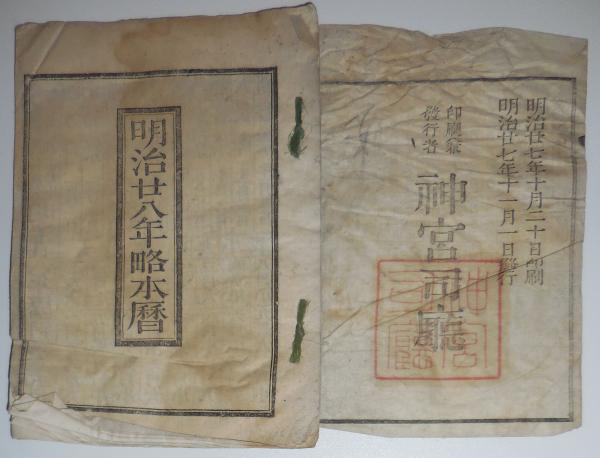 明治廿八年略本暦
明治廿七年十月二十日印刷
明治廿七年十一月一日發行
印刷兼
發行者
神宮司廳
神宮
司廳